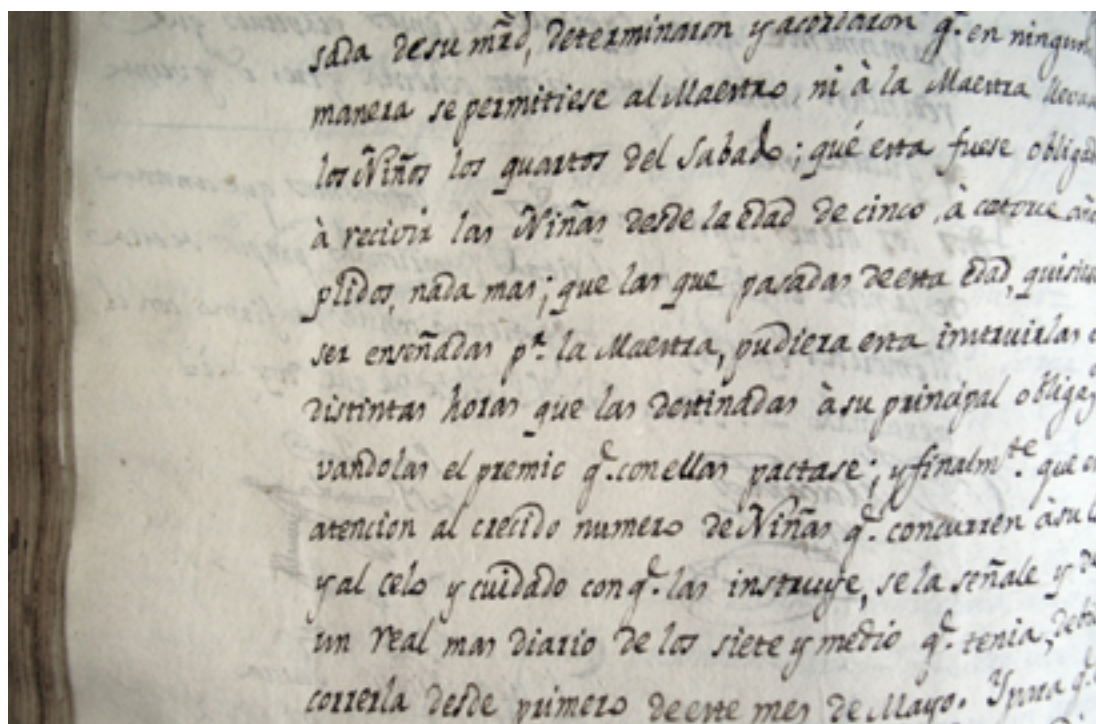 sada de su mrd, determinaron y acordaron q.e en ningun
manera se permitiese al Maestro ni à la Maestra llevar
los Niños los quartos del Sabado; qué esta fuese obligad
à recivir las Niñas desde la edad de cinco, à catorce añ
plidos, nada mas; que las que pasadas de esta edad, quisie
ser enseñadas p.r la Maestra, pudiera esta instruirlas
distintas horas que las destinadas à su principal obliga
vandolas el premio q.e con ellas pactase; y finalm.te que
atencion al crecido numero de Niñas q.e concurren à su
y al celo y cuidado con q.e las instruye, se la señale y
un real mas diario de los siete y medio q.e tenia,
correrla desde primero de este mes de Mayo. Y para q.e